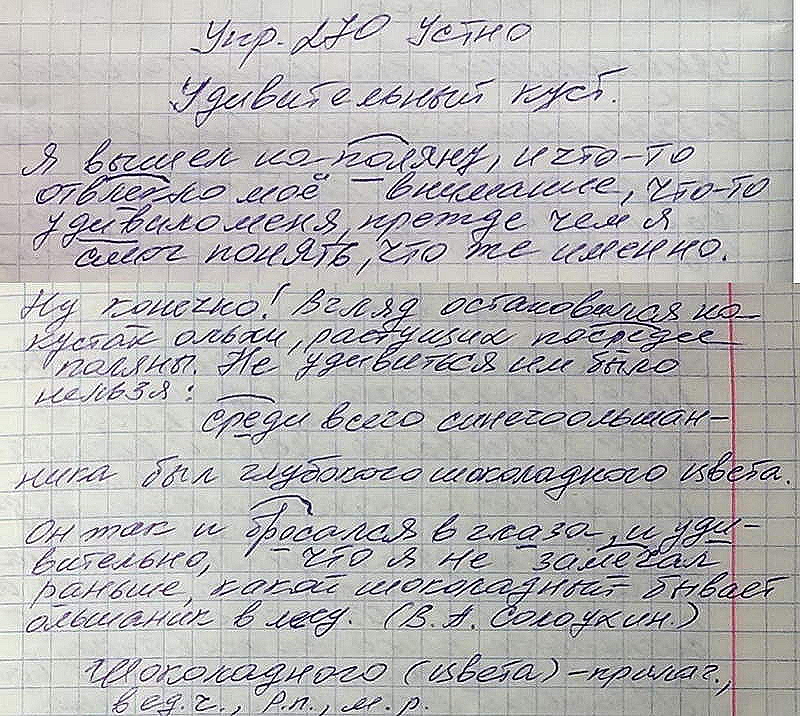 Упр. 270 Устно
Удивительный куст.
Я вышел на поляну, и что-то
отвлекло моё внимание, что-то
удивило меня, прежде чем я
смог понять, что же именно.
Ну конечно! Взгляд остановился на
кустах ольхи, растущих посредее
поляны. Не удивиться им было
нельзя:
среди всего синегоольшан-
ника был глубокого шоколадного цвета.
Он так и бросался в глаза, и уди-
вительно, что я не замечал
раньше, какой шоколадный бывает
ольшаник в лесу. (В. А. Солоухин.)
Шоколадного (цвета) - прилаг.,
в ед.ч., Р.п., м.р.